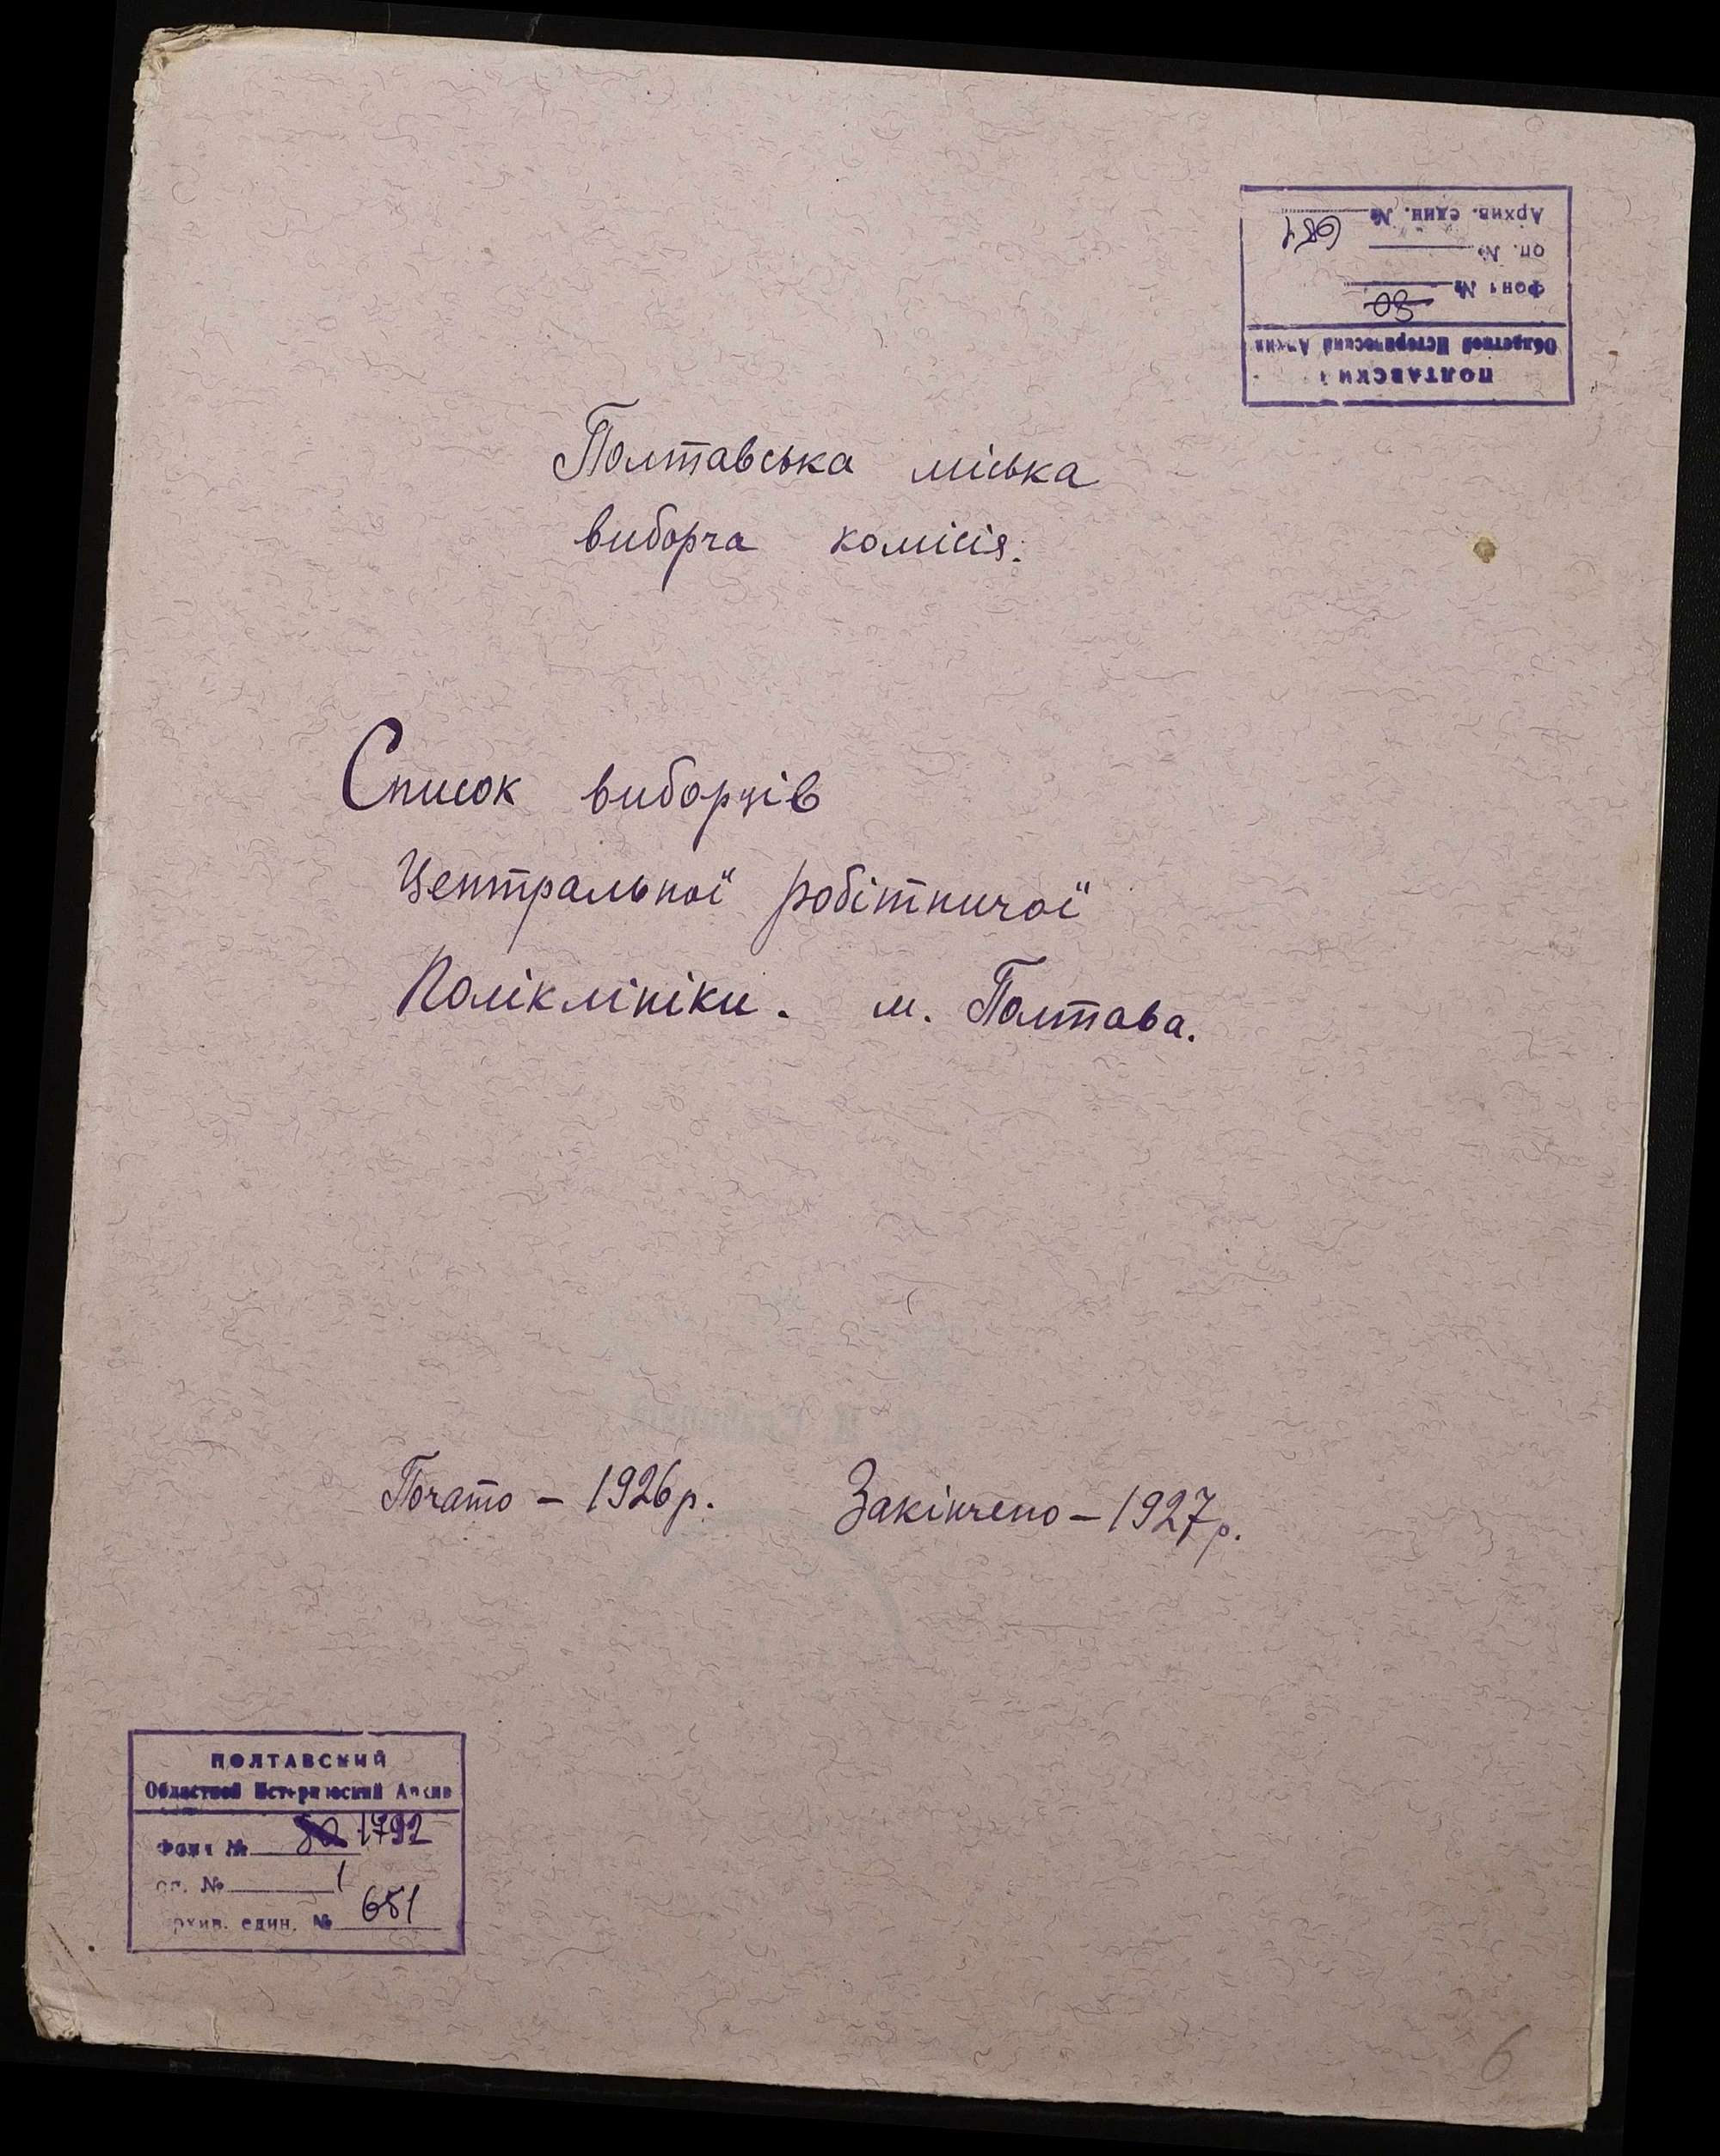 ПОЛТАВСКИЙ
Областной Исторический Архив
Фонд № 80
оп. №
Архив. един. № 681
Полтавська міська
виборча комісія.
Список виборців
Центральної робітничої
Поліклініки. м. Полтава.
Почато – 1926 р. Закінчено – 1927 р.
ПОЛТАВСКИЙ
Областной Исторический Архив
Фонд № 1792
оп. № 1
Архив. един. № 681
6